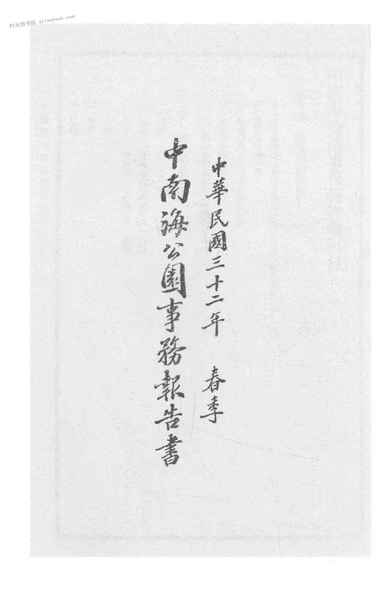 中華民國三十二年 春季
中南海公園事務報告書